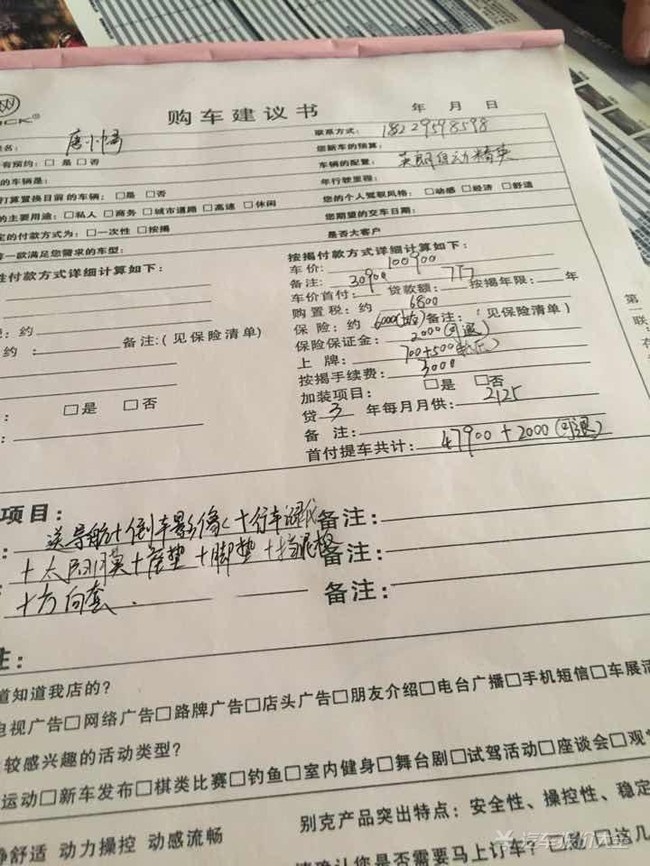 购车建议书
年 月 日
联系方式: 18229598598
有预约: □是 □否
您新车的预算:
的车辆是:
车辆的配置: 英朗自动精英
打算置换目前的车辆: □是 □否
年行驶里程:
的主要用途: □私人 □商务 □城市道路 □高速 □休闲
您的个人驾驭风格: □动感 □经济 □舒适
定的付款方式为: □一次性 □按揭
您期望的交车日期:
一款满足您需求的车型:
是否大客户
性付款方式详细计算如下:
按揭付款方式详细计算如下:
车价: 100900
备注: 30900
车价首付: 贷款额: 7万 按揭年限: 年
购置税: 约 6800
约
保险: 约 6000 备注: (见保险清单)
约: 备注:(见保险清单)
保险保证金: 2000(可退)
上牌: 700+500
按揭手续费: 3000
加装项目: □是 □否
: □是 □否
贷 3 年每月月供: 2125
备 注:
首付提车共计: 47900+2000(可退)
项目:
送导航+倒车影像+行车记录仪 备注:
+太阳膜+座垫+脚垫+挡泥板 备注:
+方向套. 备注:
注:
道知道我店的?
电视广告□网络广告□路牌广告□店头广告□朋友介绍□电台广播□手机短信□车展活
较感兴趣的活动类型?
运动□新车发布□棋类比赛□钓鱼□室内健身□舞台剧□试驾活动□座谈会□观
别克产品突出特点: 安全性、操控性、稳定
静舒适 动力操控 动感流畅
请确认您是否需要马上订车? 已认
这几
第一联
汽车报价大全